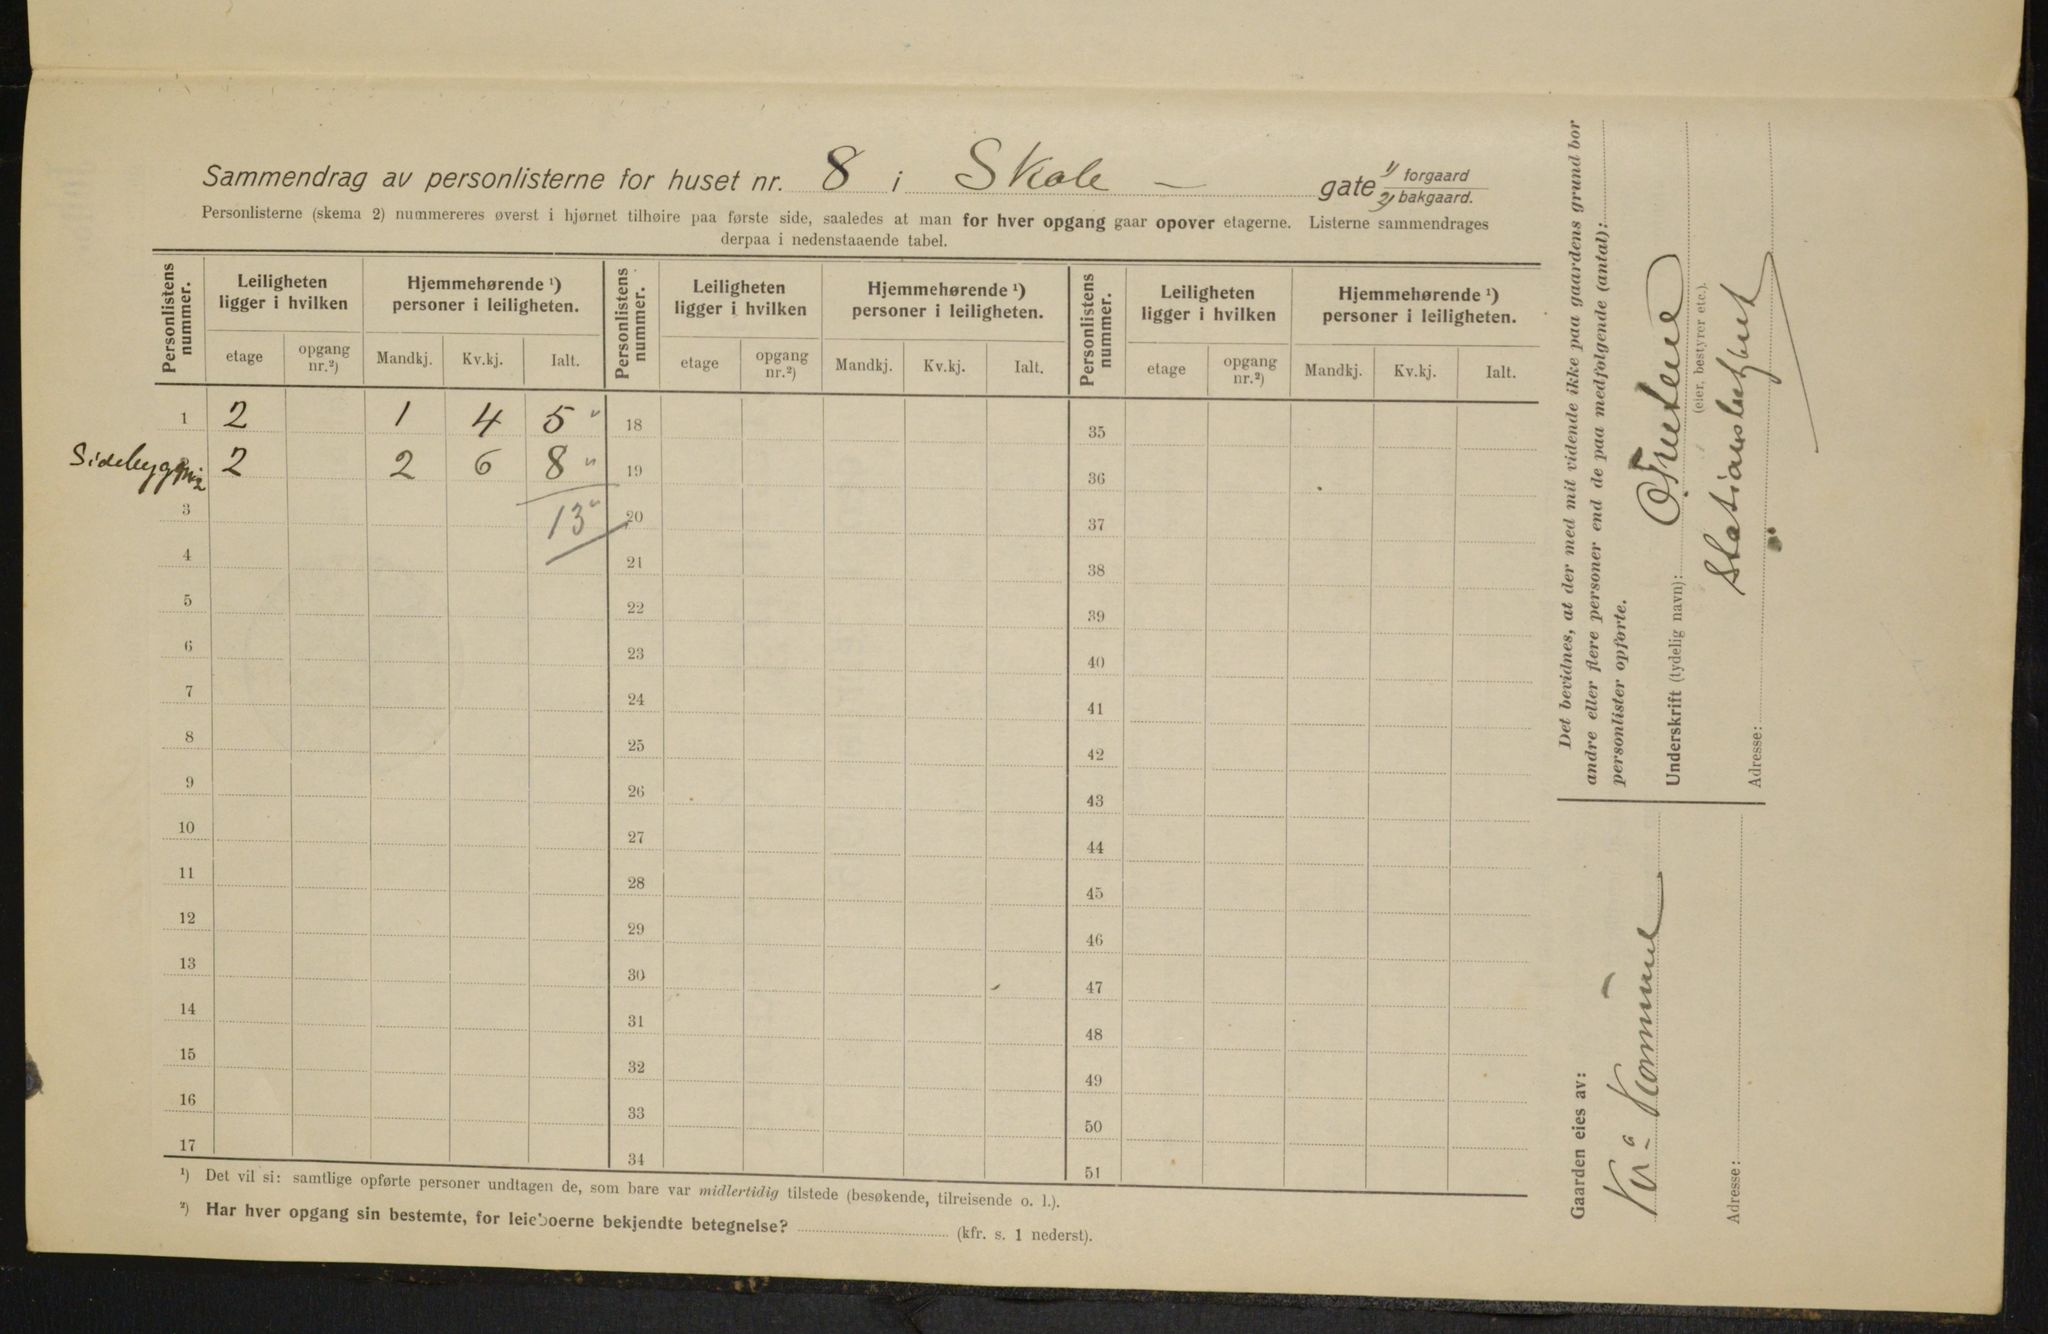 Sammendrag av personlisterne for huset nr. 8 i Skole – gate 1) forgaard 2) bakgaard.
Personlisterne (skema 2) nummereres øverst i hjørnet tilhøire paa første side, saaledes at man for hver opgang gaar opover etagerne. Listerne sammendrages
derpaa i nedenstaaende tabel.
Personlistens nummer. Leiligheten ligger i hvilken Hjemmehørende ¹) personer i leiligheten. Personlistens nummer. Leiligheten ligger i hvilken Hjemmehørende ¹) personer i leiligheten. Personlistens nummer. Leiligheten ligger i hvilken Hjemmehørende ¹) personer i leiligheten.
etage opgang nr.²) Mandkj. Kv.kj. Ialt. etage opgang nr.²) Mandkj. Kv.kj. Ialt. etage opgang nr.²) Mandkj. Kv.kj. Ialt.
1 2 1 4 5 18 35
2 2 2 6 8 19 36
3 13 20 37
4 21 38
5 22 39
6 23 40
7 24 41
8 25 42
9 26 43
10 27 44
11 28 45
12 29 46
13 30 47
14 31 48
15 32 49
16 33 50
17 34 51
¹) Det vil si: samtlige opførte personer undtagen de, som bare var midlertidig tilstede (besøkende, tilreisende o. l.).
²) Har hver opgang sin bestemte, for leieboerne bekjendte betegnelse? (kfr. s. 1 nederst).
Det bevidnes, at der med mit vidende ikke paa gaardens grund bor
andre eller flere personer end de paa medfølgende (antal):
personlister opførte.
Underskrift (tydelig navn):
(eier, bestyrer etc.).
Adresse:
Gaarden eies av:
Kra Kommune
Adresse: